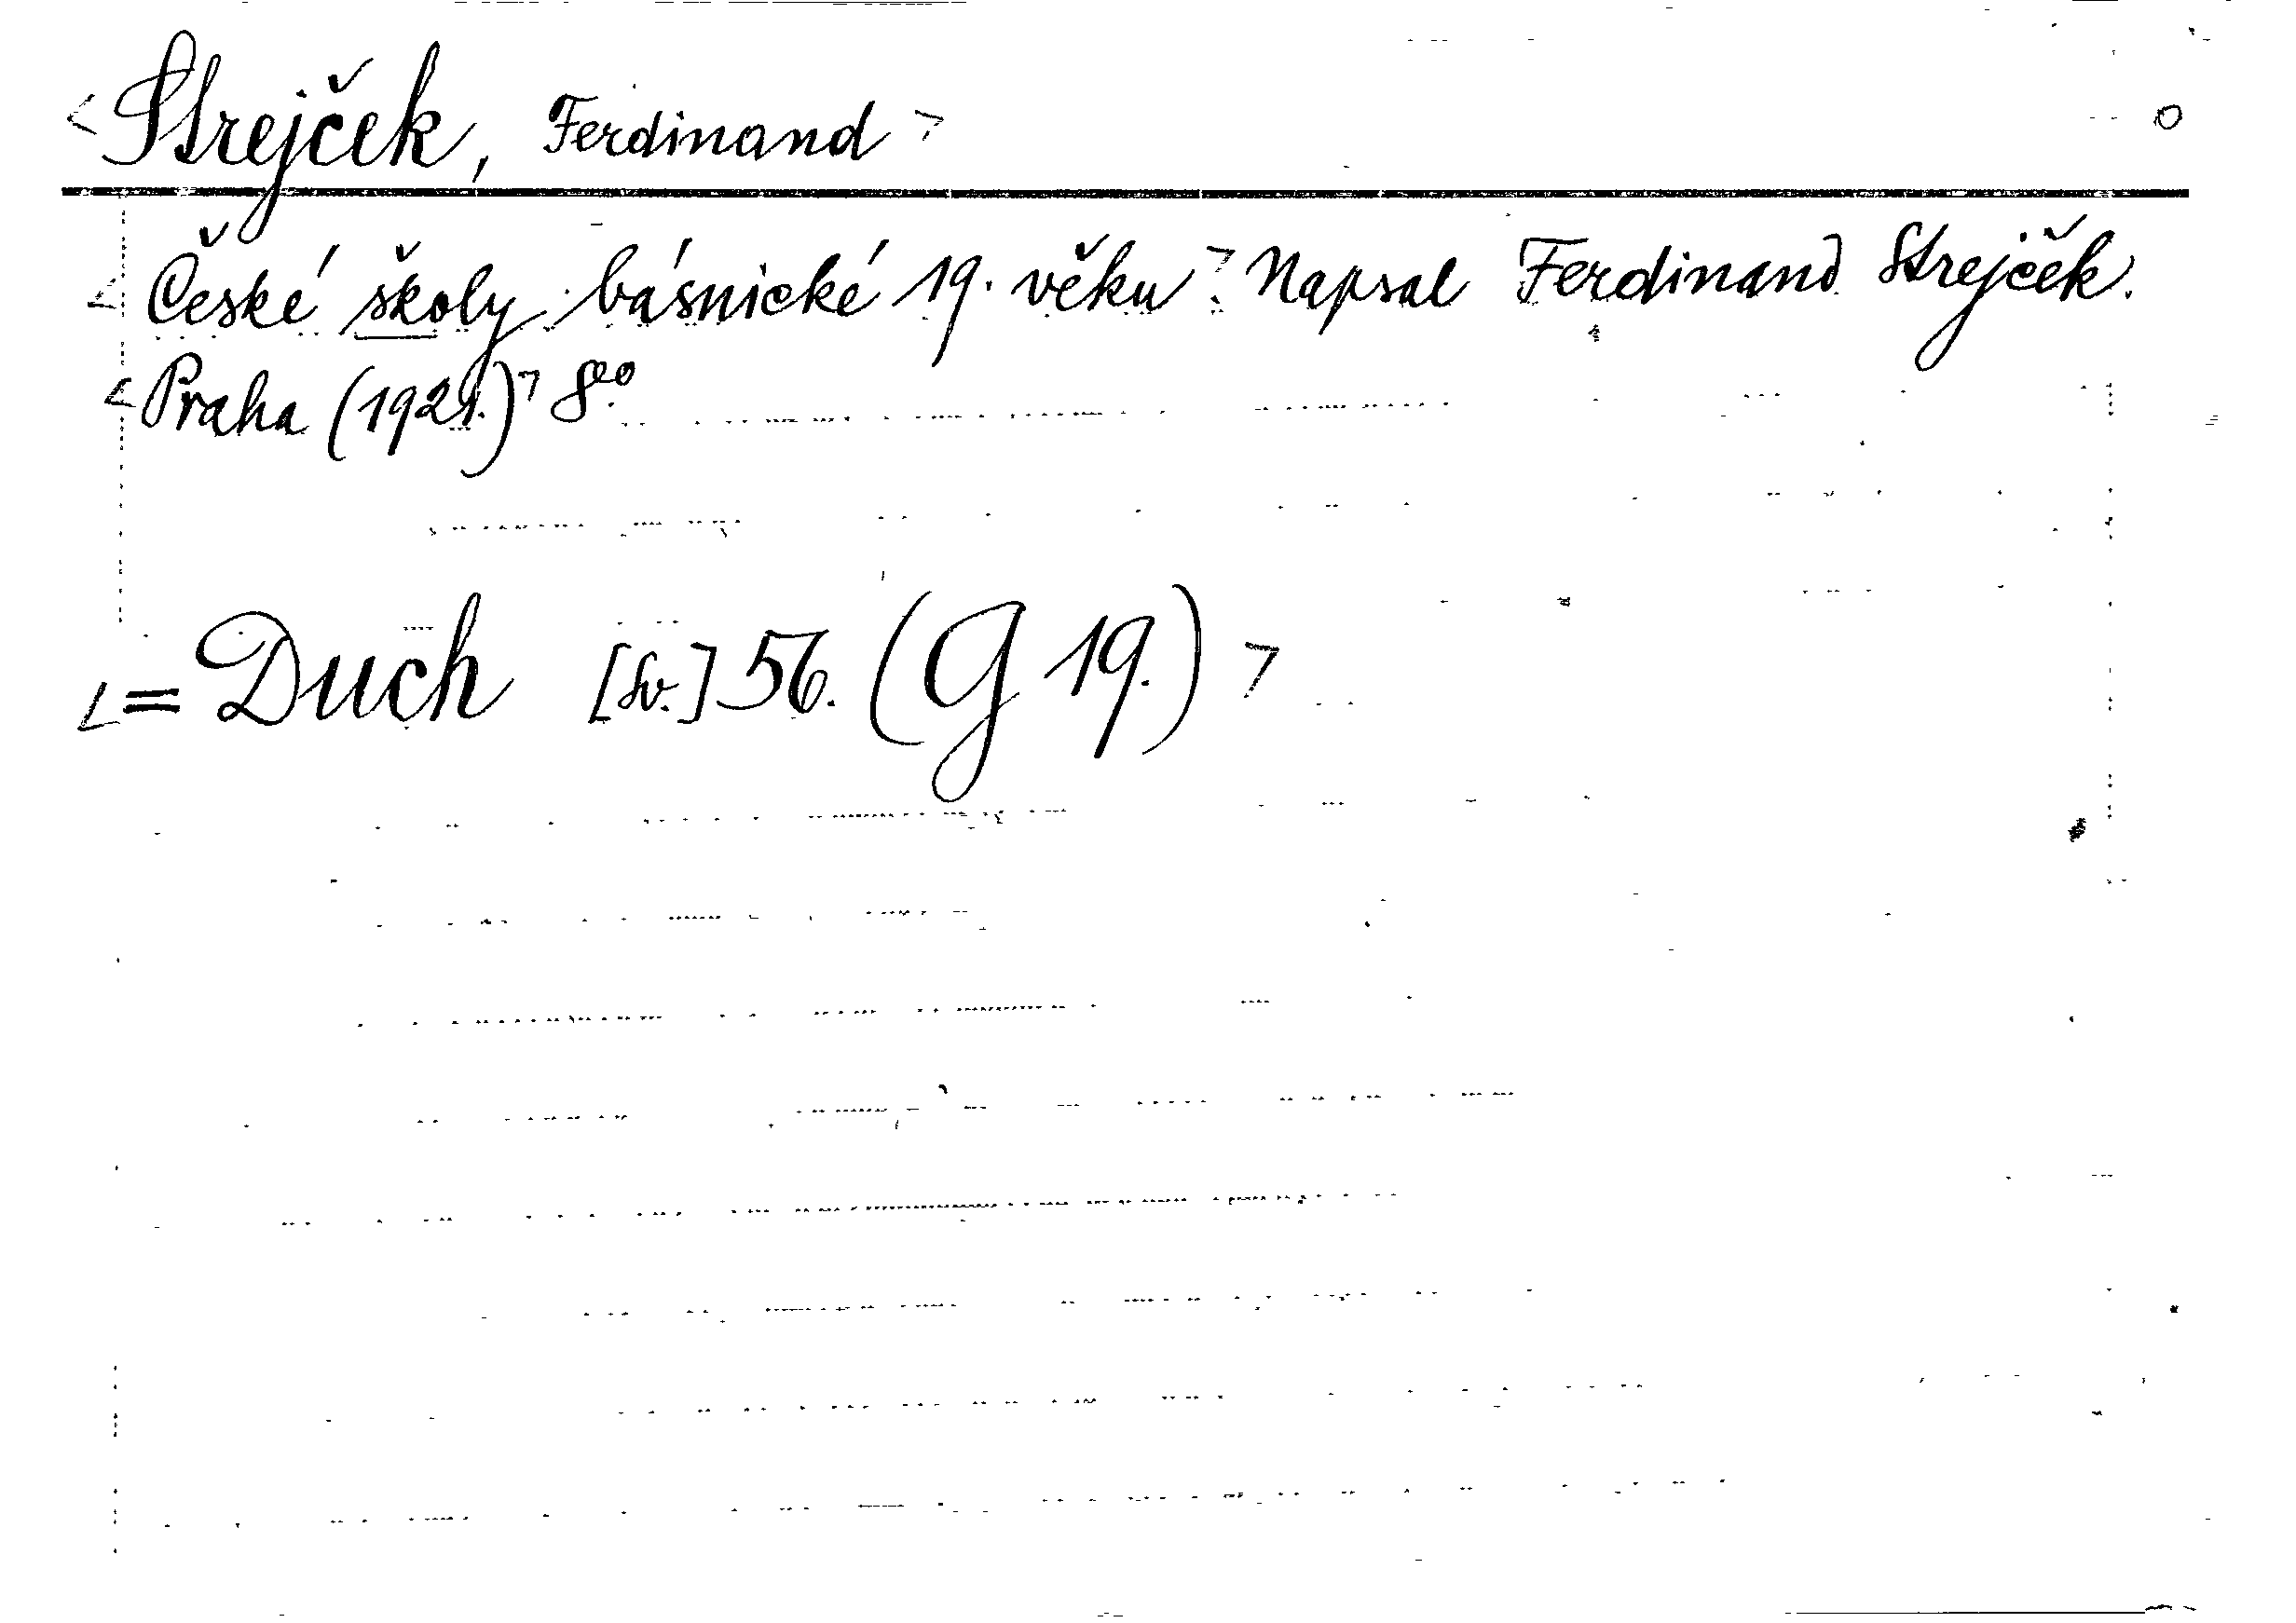 <Strejček, Ferdinand> O
<České školy básnické 19. věku.> Napsal Ferdinand Strejček.
<Praha (1921.)> 8vo
<= Duch [sv.] 56. (G 19.)>